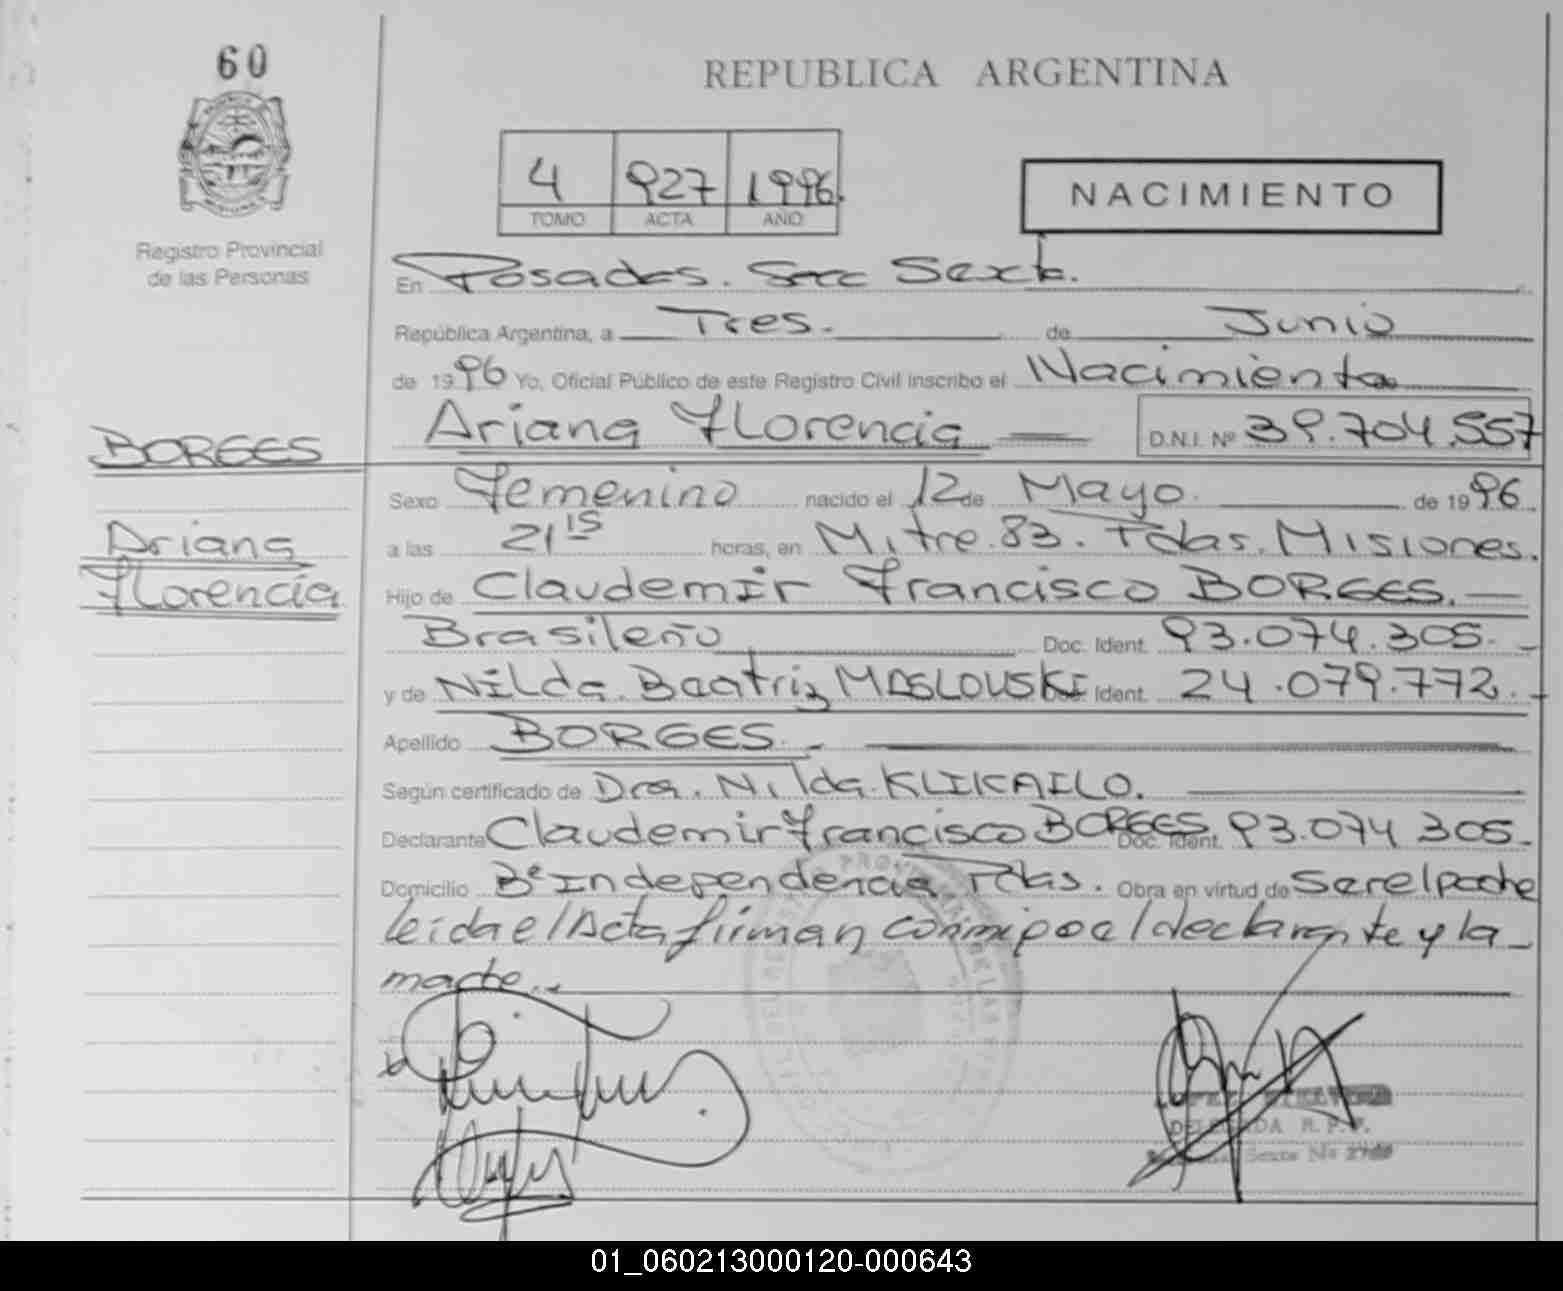 60
REPUBLICA ARGENTINA
4 927 1996.
TOMO ACTA AÑO
NACIMIENTO
Registro Provincial
de las Personas
En Posadas. Secc Sexta.
República Argentina, a Tres. de Junio
de 1996 Yo, Oficial Público de este Registro Civil inscribo el Nacimiento
BORGES
Ariana Florencia D.N.I. Nº 39.704.557
Sexo Femenino nacido el 12 de Mayo. de 1996
Ariana
a las 21 15 horas, en Mitre.83. Pdas. Misiones.
Florencia
Hijo de Claudemir Francisco BORGES.
Brasileño Doc. Ident. 93.074.305.
y de Nilda Beatriz MASLOUSKI Doc. Ident. 24.079.772.
Apellido BORGES.
Según certificado de Dra. Nilda KLIKAILO.
Declarante Claudemir Francisco BORGES. Doc. Ident. 93.074 305.
Domicilio Bº Independencia Pdas. Obra en virtud de Ser el padre
leída el Acta firman conmigo el declarante y la
madre..
DELEGADA R.P.P.
Sexta Nº
01_060213000120-000643